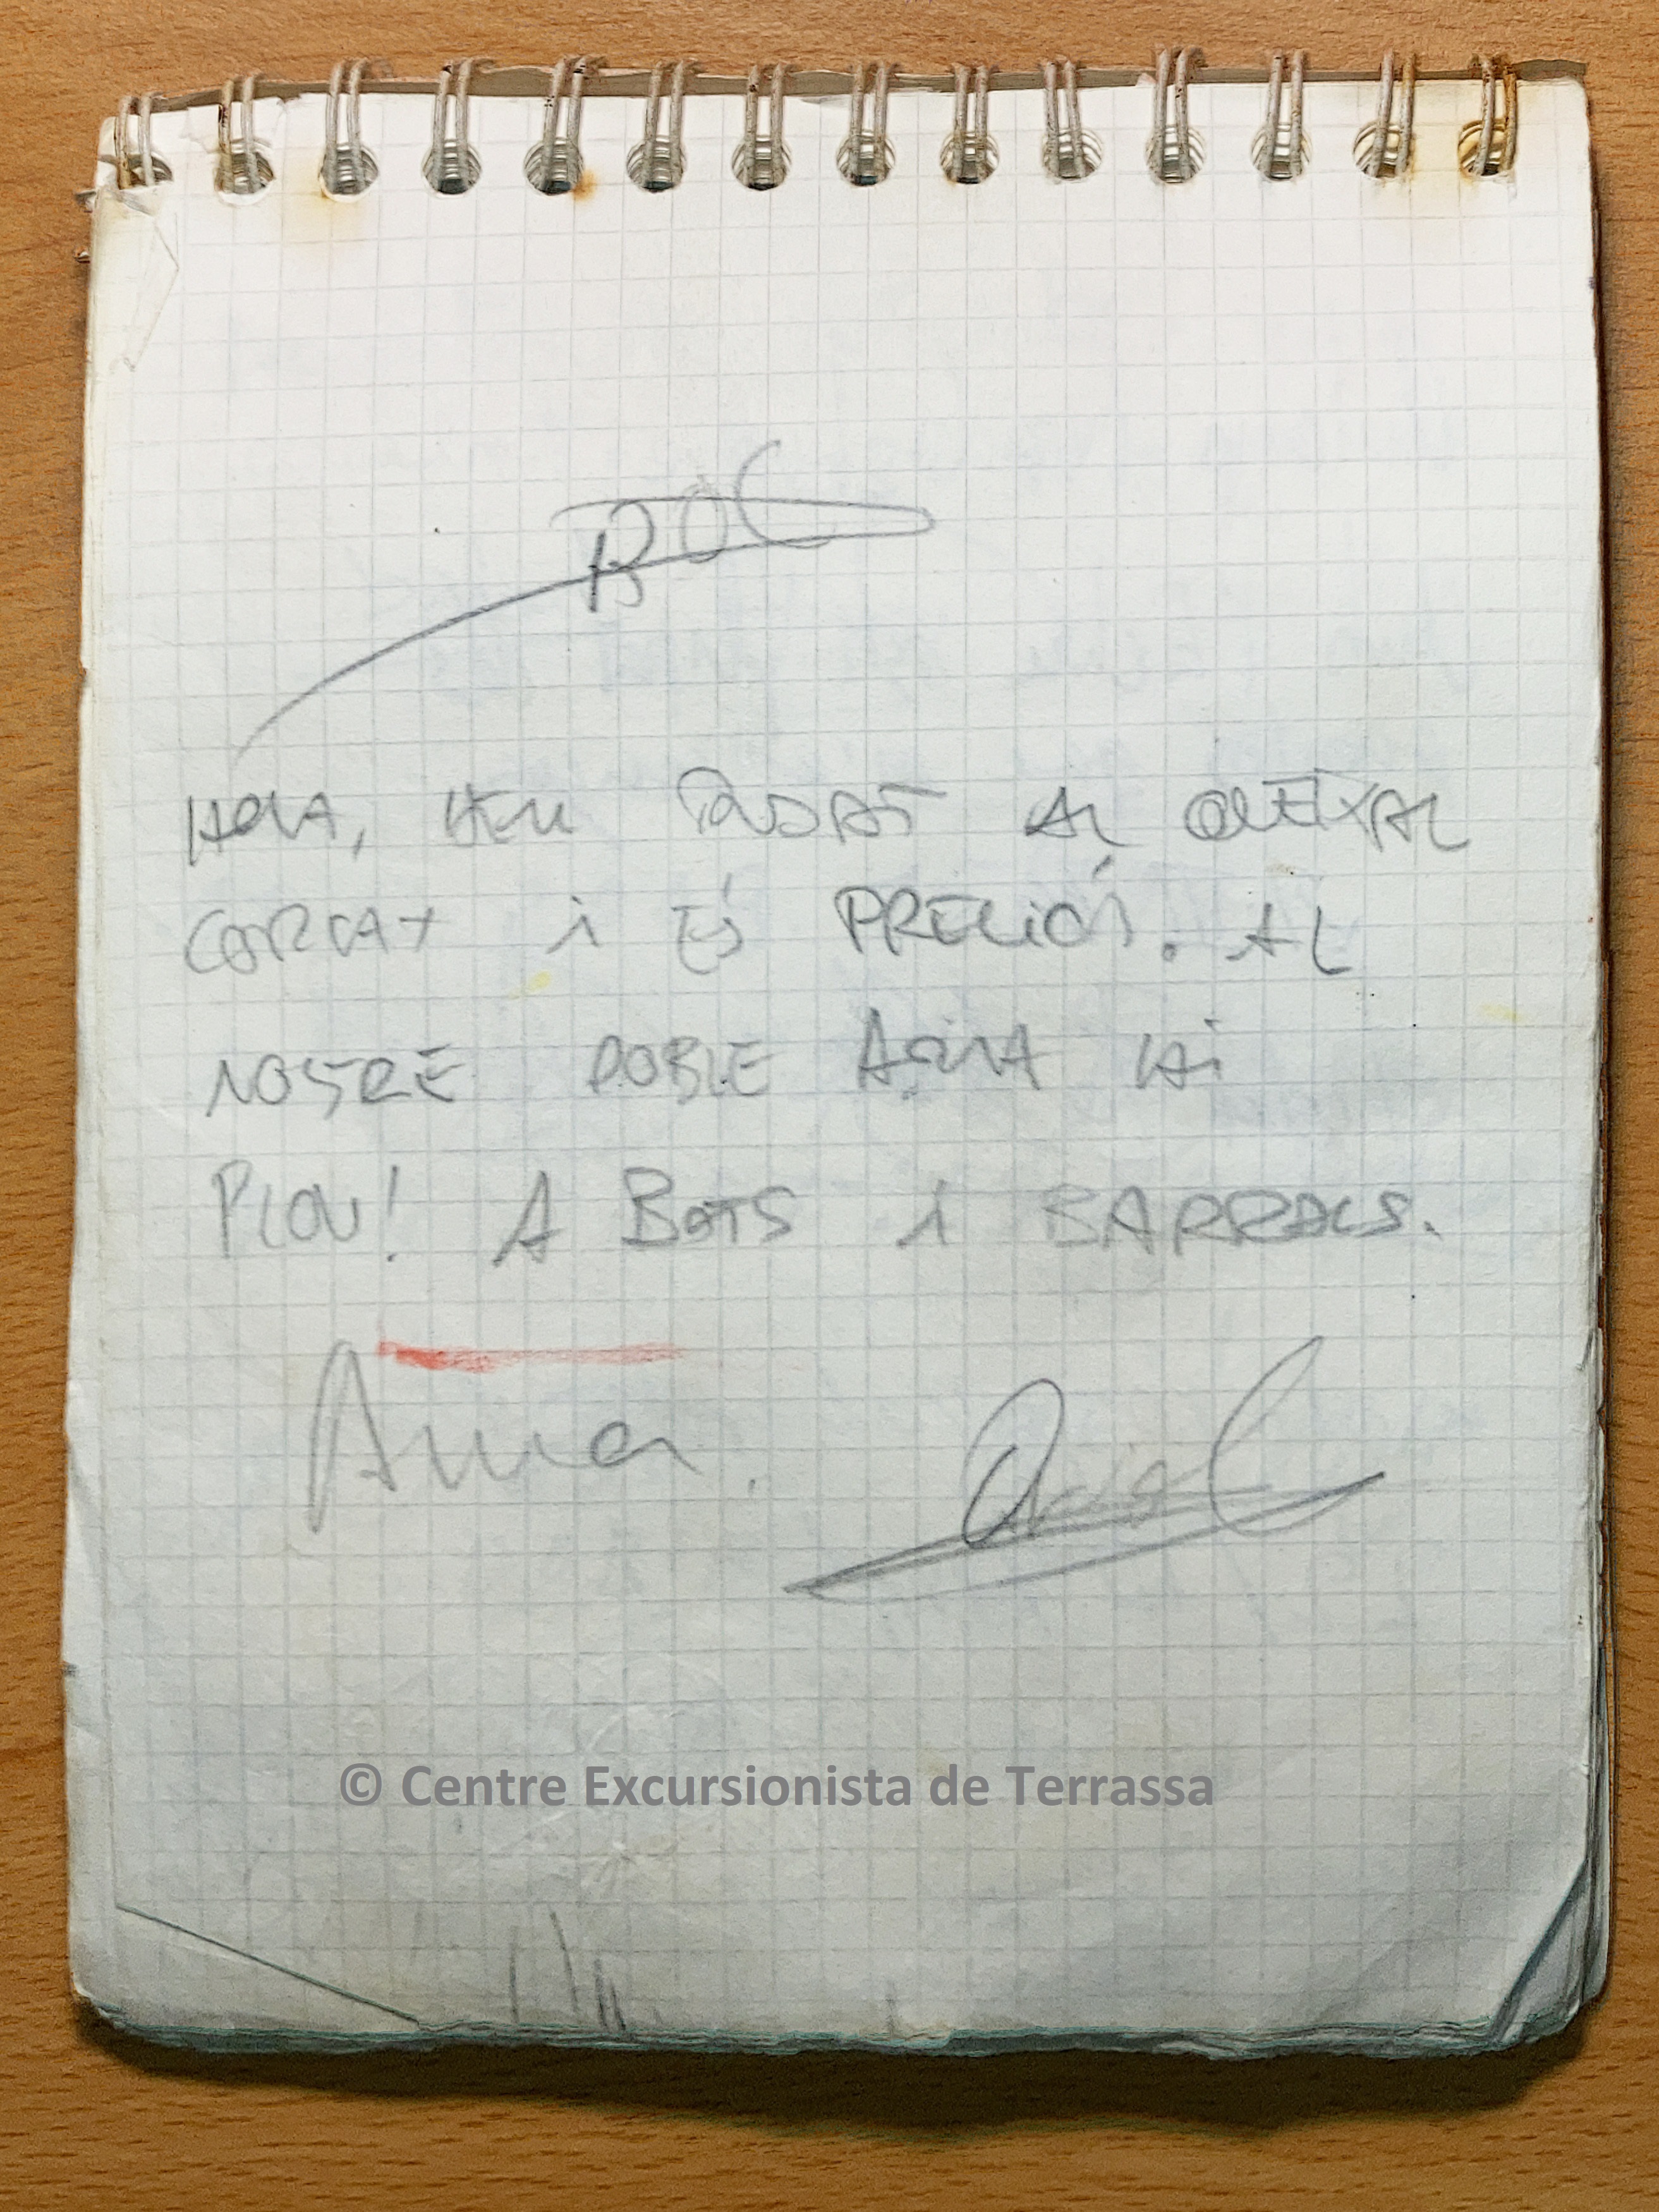 ROC
HOLA, HEM PUJAT AL QUEIXAL
CORCAT i ÉS PRECIÓS. AL
NOSTRE POBLE ARA HI
PLOU! A BOTS i BARRALS.
Anna. Oriol
© Centre Excursionista de Terrassa